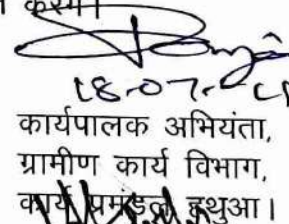 करेंगे।
18-07-
कार्यपालक अभियंता,
ग्रामीण कार्य विभाग,
कार्य प्रमंडल हथुआ।